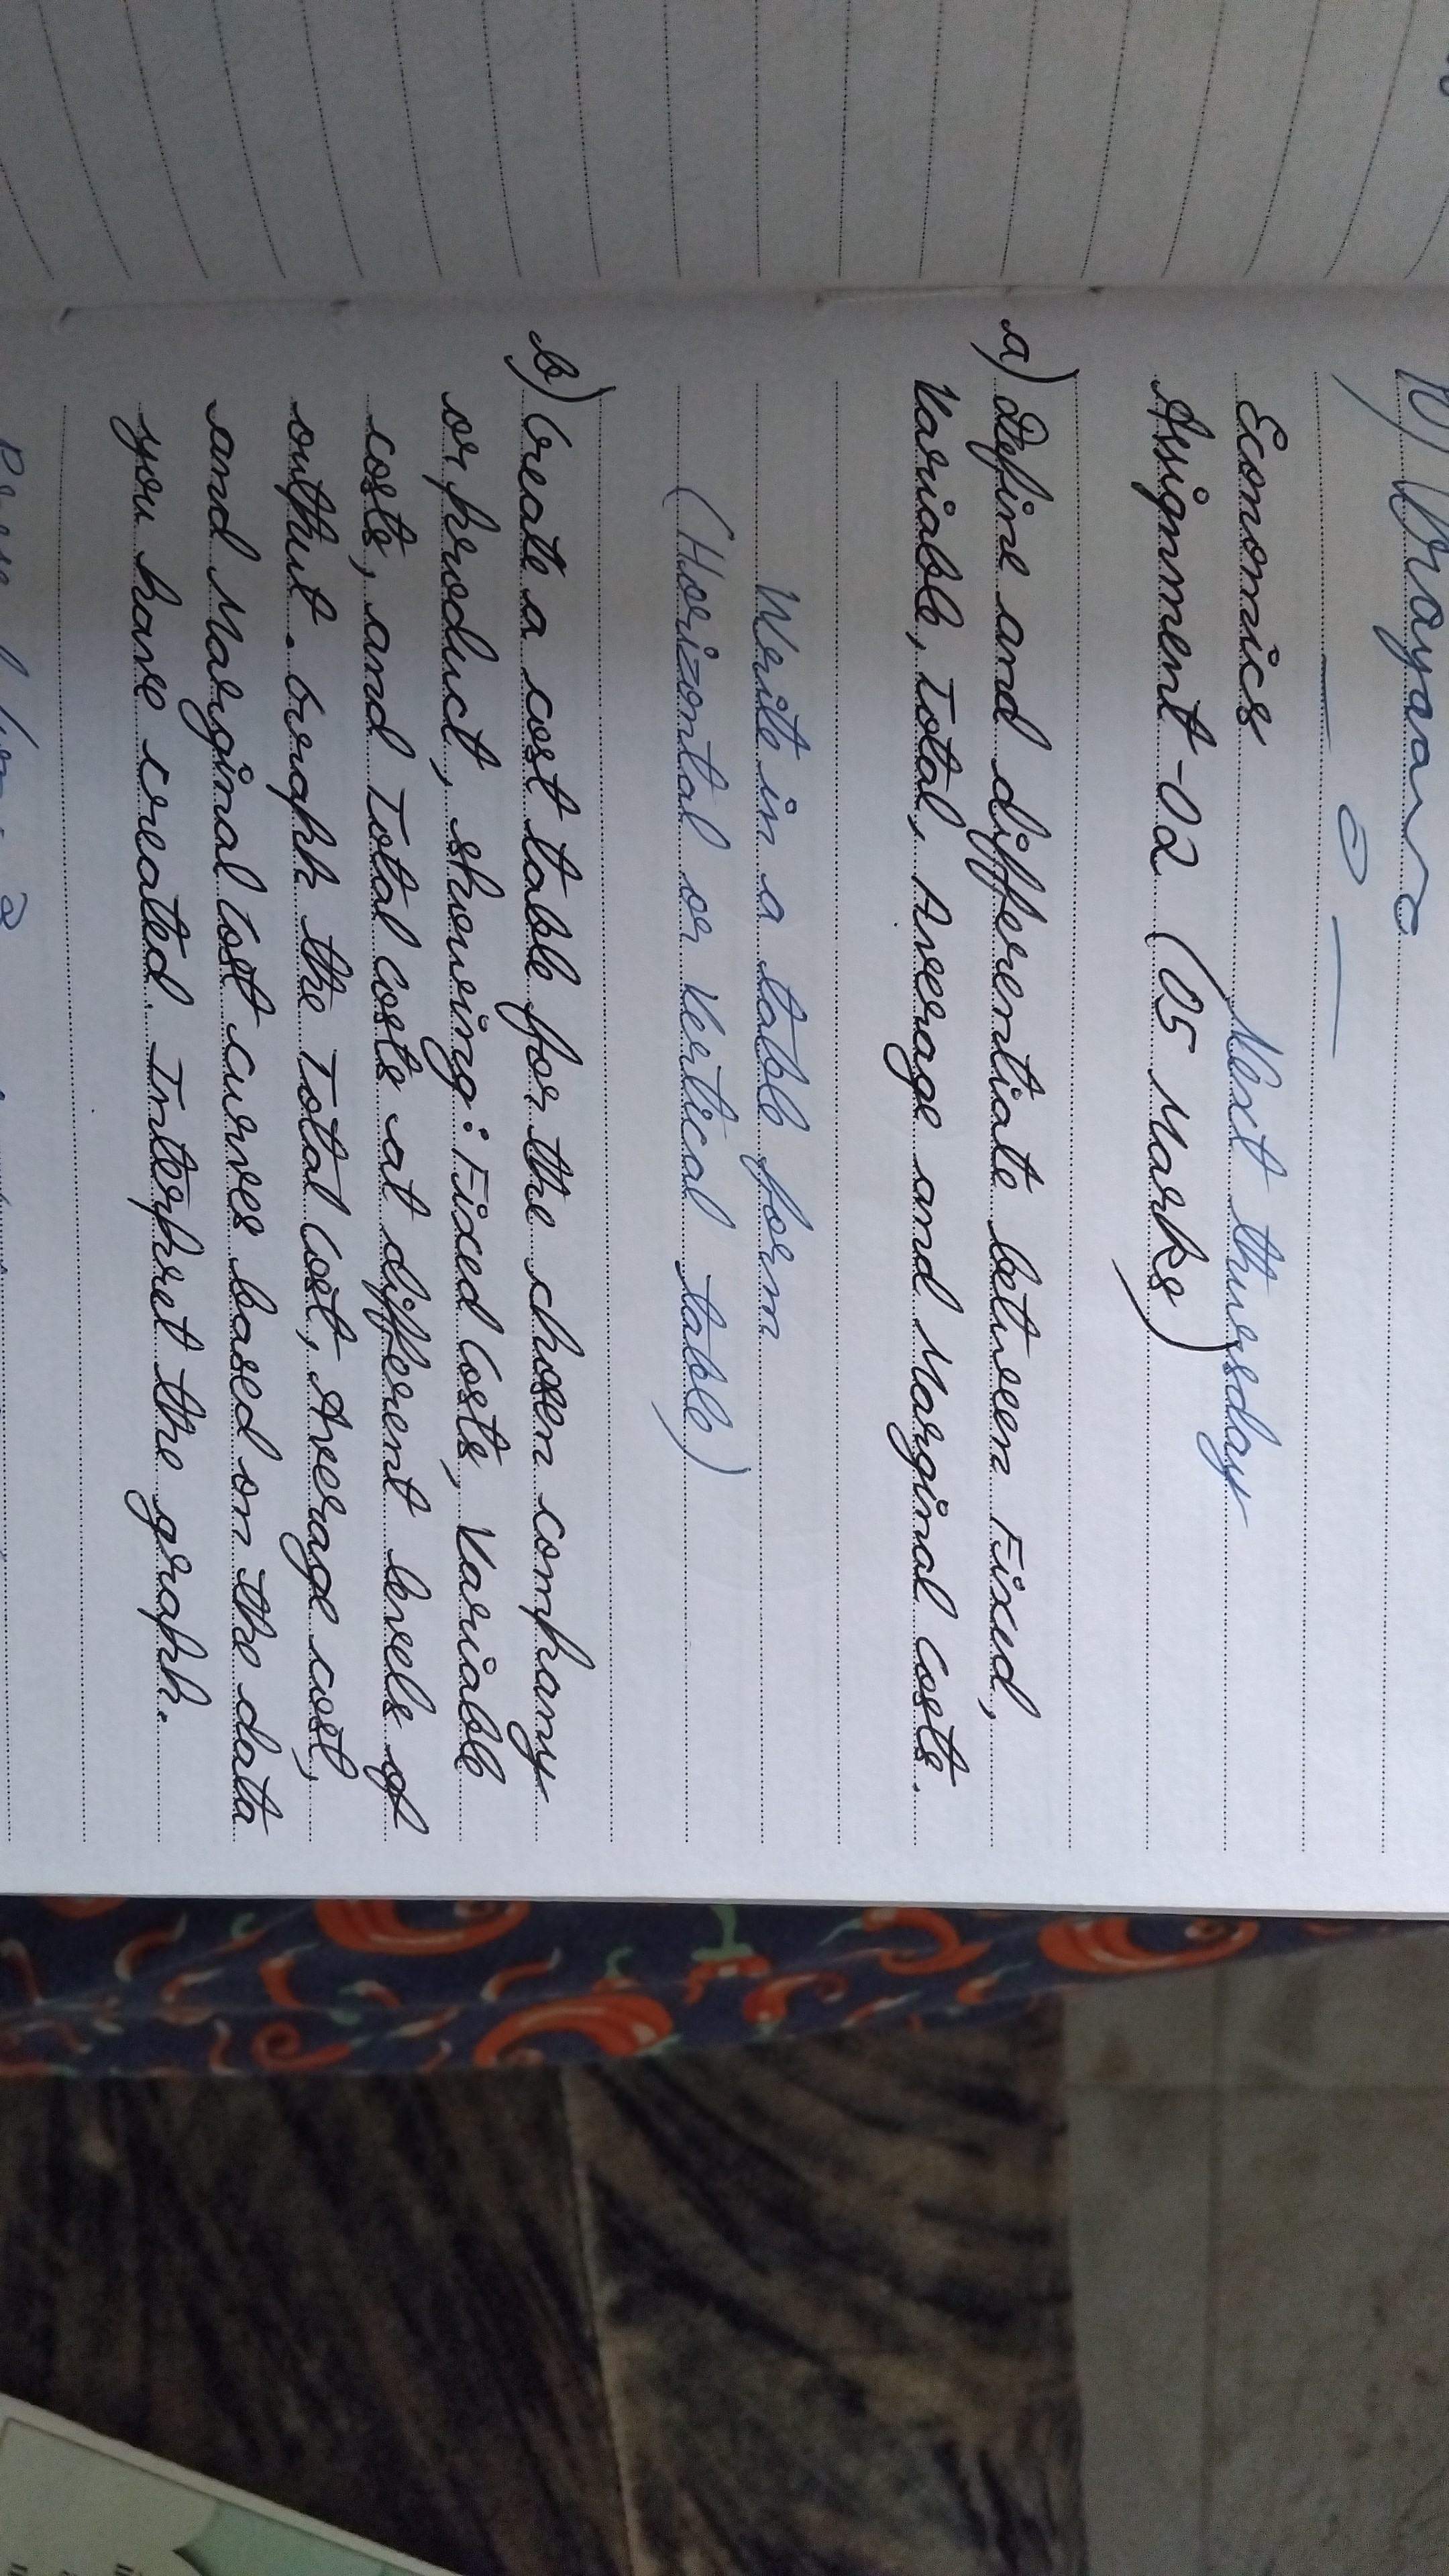 10)
Economics
Next thursday
Assignment-02 (05 Marks)
a) Define and differentiate between Fixed,
Variable, Total, Average and Marginal Costs.
Write in a table form
(Horizontal or Vertical table)
b) Create a cost table for the chosen company
or product, showing: Fixed Costs, Variable
costs, and Total Costs at different levels of
output. Graph the Total Cost, Average cost,
and Marginal Cost curves based on the data
you have created. Interpret the graph.